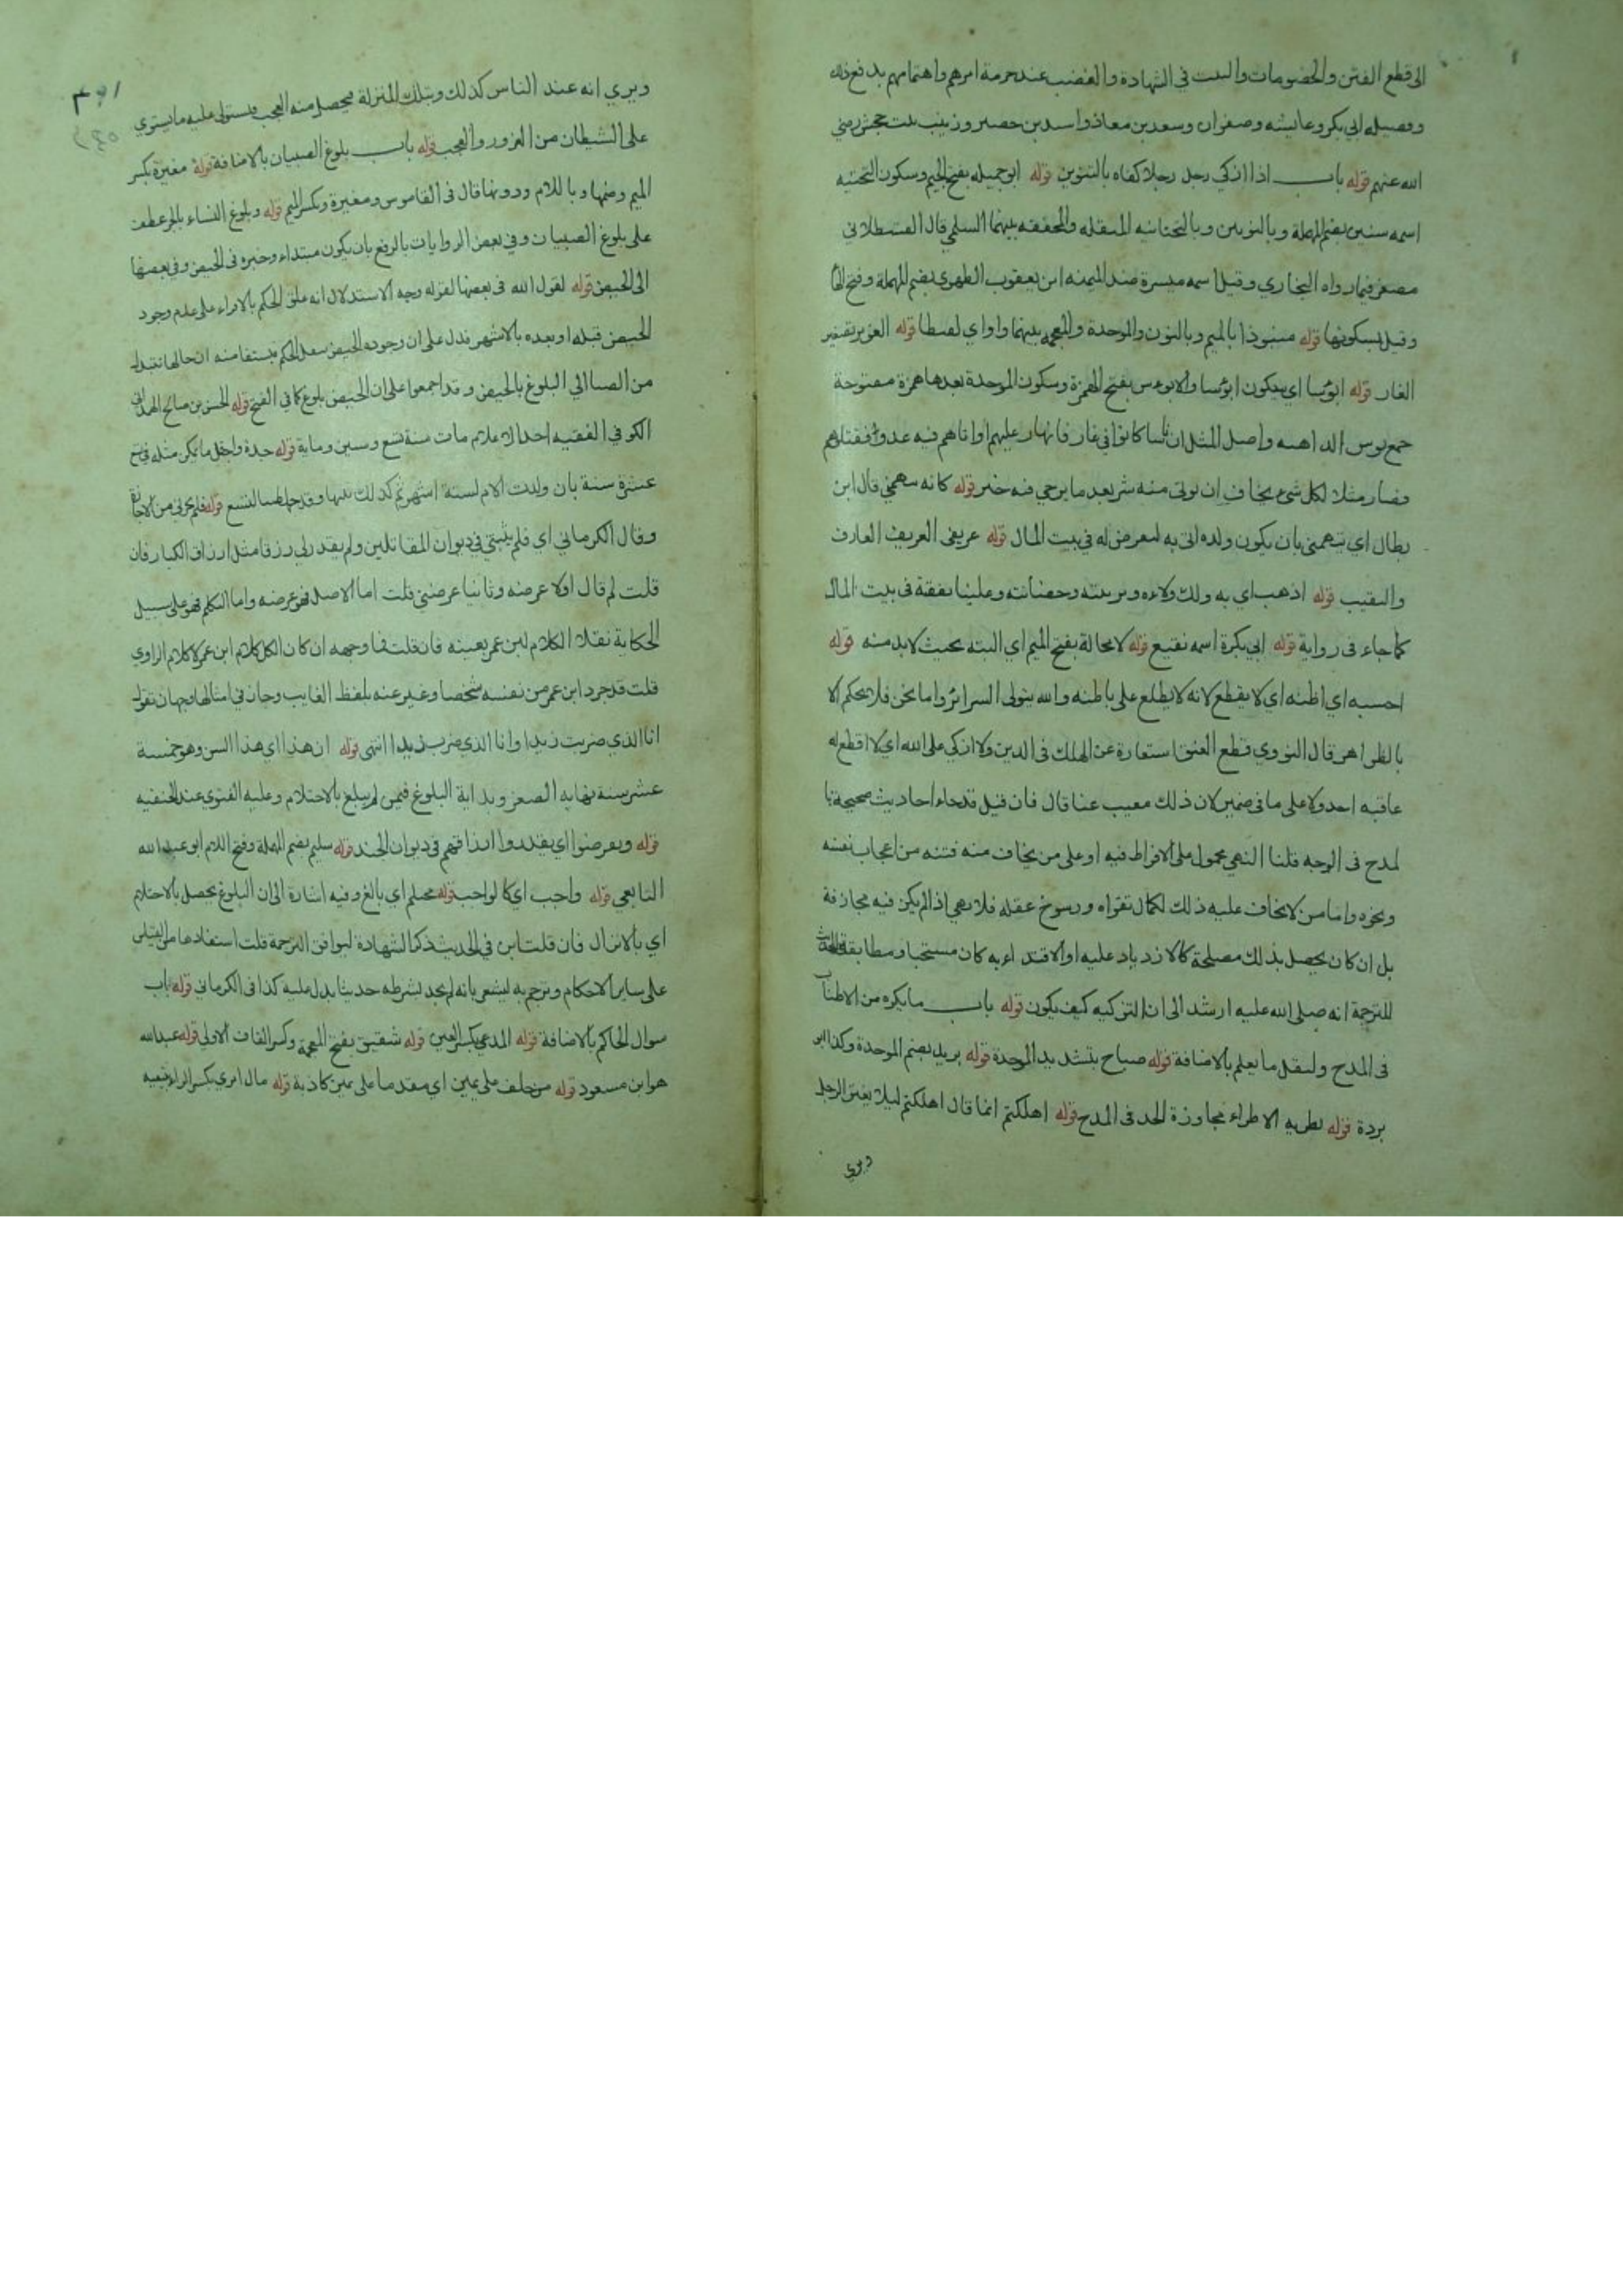 الى قطع الفتن والخصومات والبت في الشهادة والغضب عند حرمة امرهم واهتمامهم بدفع ذلك
وفضيله ابي بكر وعايشه وصفوان وسعد بن معاذ واسيد بن حضير وزينب بنت جحش رضي
الله عنهم قوله باب اذا زكي رجل رجلا كفاه بالتنوين قوله ابو جميله بفتح الجيم وسكون التحتيه
اسمه سنين بضم المهملة وبالنونين وبالتحتانيه المثقله والمخففه بينهما السلمي قال القسطلاني
مصغر فيما رواه البخاري وقيل اسمه ميسرة ضد الميمنه ابن يعقوب الطهوى بضم المهملة وفتح الها
وقيل بسكونها قوله منبوذا بالميم وبالنون والموحدة والمعجمه بينهما واو اي لقيطا قوله الغوير تصغير
الغار قوله ابؤسا اي يكون ابؤسا والابوس بفتح الهمزة وسكون الموحدة بعدها همزة مفتوحة
جمع بوس الداهيه واصل المثل ان ناسا كانوا في غار فانهار عليهم او اتاهم فيه عدو فقتلوهم
فصار مثلا لكل شئ يخاف ان يوتى منه شر بعد ما يرجي فيه خير قوله كانه يتهمني قال ابن
بطال اي يتهمني بان يكون ولده اتى به ليفرض له في بيت المال قوله عريفى العريف العارف
والنقيب قوله اذهب اي به ولك ولاءه وتربيته وحضانته وعلينا نفقة فى بيت المال
كما جاء فى رواية قوله ابي بكرة اسمه نفيع قوله لا محالة بفتح الميم اي البته بحيث لا بد منه قوله
احسبه اي اظنه اي لا يقطع لانه لا يطلع على باطنه والله يتولى السرائر واما نحن فلا نحكم الا
بالظواهر قال النووي قطع العنق استعارة عن الهلاك فى الدين ولا ازكي على الله اي لا اقطع له
عاقبه احد ولا على ما فى ضميره لان ذلك مغيب عنا قال فان قيل قد جاء احاديث صحيحة با
لمدح فى الوجه قلنا النهي محمول على الافراط فيه او على من يخاف منه فتنه من اعجاب نفسه
ونحوه واما من لا يخاف عليه ذلك لكمال تقواه ورسوخ عقله فلا نهي اذا لم يكن فيه مجازفة
بل ان كان يحصل بذلك مصلحة كالازدياد عليه او الاقتداء به كان مستحبا ومطابقة الحديث
للترجمة انه صلى الله عليه ارشد الى ان التزكيه كيف يكون قوله باب ما يكره من الاطناب
فى المدح وليقل ما يعلم بالاضافة قوله صباح بتشديد الموحدة قوله بريد بضم الموحدة وكذا ابو
بردة قوله يطريه الاطراء مجاوزة الحد فى المدح قوله اهلكتم انما قال اهلكتم ليلا يغتر الرجل
ويري
٣٩١
ويري انه عند الناس كذلك وبتلك المنزلة فيحصل منه العجب ويستولى عليه ما يستولي
على الشيطان من الغرور والعجب قوله باب بلوغ الصبيان بالاضافة قوله مغيرة بكسر
الميم وضمها وباللام ودونها قال فى القاموس ومغيرة وتكسر الميم قوله وبلوغ النساء بالجر عطف
على بلوغ الصبيان وفي بعض الروايات بالرفع بان يكون مبتداء وخبره فى الحيض وفي بعضها
الى الحيض قوله لقول الله فى بعضها لقوله وجه الاستدلال انه علق الحكم بالاقراء على عدم وجود
الحيض قبله او بعده بالاشهر فدل على ان وجود الحيض ينقل الحكم فيستفاد منه ان حالها تنتقل
من الصبا الي البلوغ بالحيض وقد اجمعوا على ان الحيض بلوغ كما في الفتح قوله الحسن بن صالح الهمداني
الكوفي الفقيه احد الاعلام مات سنة تسع وستين وماية قوله جدة واقل ما يكن مثله في تسع
عشرة سنة بان ولدت الام لستة اشهر ثم كذلك بنتها وقد حاضتا لتسع قوله فلم يجزني من الاجازة
وقال الكرماني اي فلم يثبتني في ديوان المقاتلين ولم يقدر لي رزقا مثل ارزاق الكبار فان
قلت لم قال اولا عرضه وثانيا عرضني قلت اما الاصل فهو عرضه واما التكلم فهو على سبيل
الحكاية نقلا الكلام لابن عمر بعينه فان قلت فما وجهه ان كان الكل كلام ابن عمر لا كلام الراوي
قلت قد جرد ابن عمر من نفسه شخصا وعبر عنه بلفظ الغايب وجاز في امثالها وجهان تقول
انا الذي ضربت زيدا وانا الذي ضرب زيدا انتهى قوله ان هذا اي هذا السن وهو خمسة
عشر سنة نهايه الصغر وبداية البلوغ فيمن لم يبلغ بالاحتلام وعليه الفتوي عند الحنفيه
قوله ويفرضوا اي يقدروا ارزاقهم في ديوان الجند قوله سليم بضم المهملة وفتح اللام ابو عبد الله
التابعي قوله واجب اي كالواجب قوله محتلم اي بالغ وفيه اشارة الى ان البلوغ يحصل بالاحتلام
اي بالانزال فان قلت اين في الحديث ذكر الشهادة ليوافق الترجمة قلت استفادها من القياس
على ساير الاحكام وترجم به ليشعر بانه لم يجد بشرطه حديثا يدل عليه كذا فى الكرماني قوله باب
سوال الحاكم بالاضافة قوله المدعي بكسر العين قوله شقيق بفتح المعجمة وكسر القاف الاولى قوله عبد الله
هو ابن مسعود قوله من حلف على يمين اي مقدما على يمين كاذبة قوله مال امري بكسر الراء تبعيه